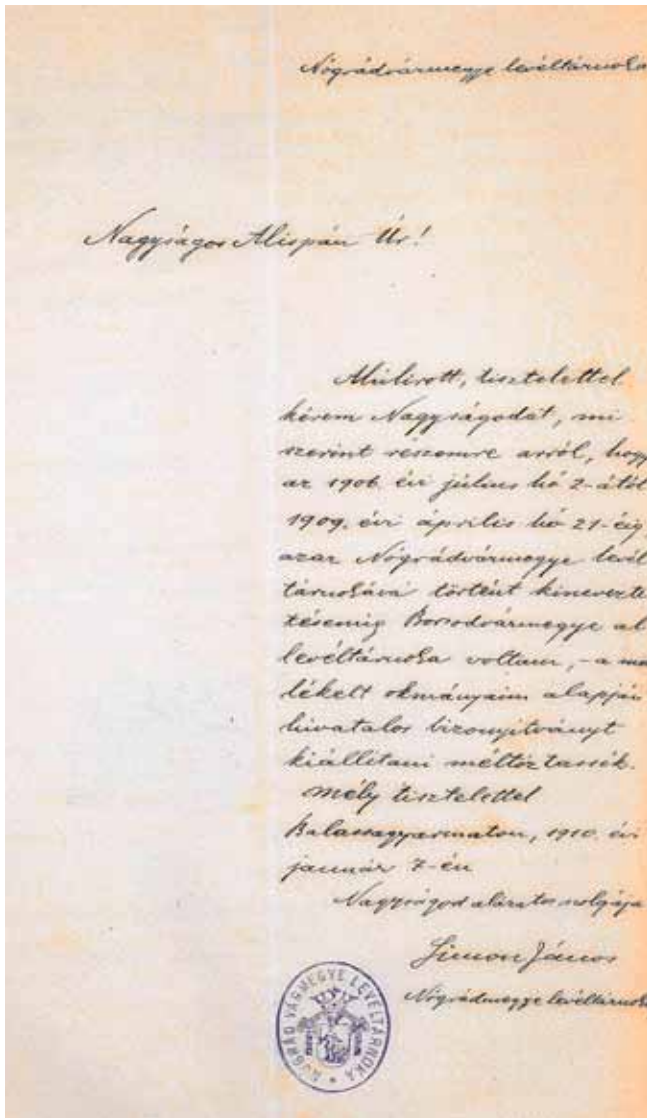 Nógrádvármegye levéltárnoka
Nagyságos Alispán Úr!
Alúlirott, tisztelettel
kérem Nagyságodat, mi
szerint részemre arról, hogy
az 1906. évi július hó 2-ától
1909. évi április hó 21-éig,
azaz Nógrádvármegye levél
tárnokává történt kinevezte
tésemig Borsodvármegye al
levéltárnoka voltam, - a mel
lékelt okmányaim alapján
hivatalos bizonyitványt
kiállitani méltóztassék.
Mély tisztelettel
Balassagyarmaton, 1910. évi
január 7-én
Nagyságod alázatos szolgája
Simon János
Nógrádmegye levéltárnoka
NÓGRÁD VÁRMEGYE LEVÉLTÁRNOKA